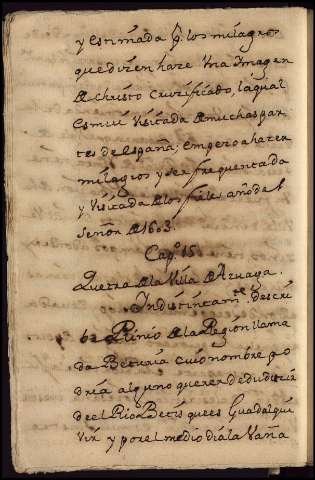 y estimada por los milagros
que dizen haze vna Imagen
de Christo Cruzificado, la qual
es mui Visitada de muchas par
tes de españa; empezo a hazer
milagros y ser frequentada
y Visitada de los fieles año del
señor de 1603.
Capº. 15.
Que trata de la Villa de Azuaga.
Indistintamte. descri
be Plinio de la Region llama
da Beturia cuio nombre po
dria alguno querer deduzir
de el Rio Betis que es Guadalqui
vir y por el medio dia la vaña